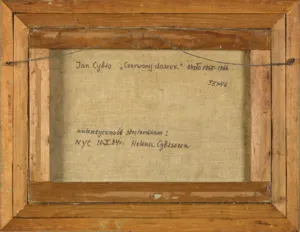 Jan Cybis „Czerwony dawek" około 1965-1966
autentyczność stwierdzam:
NYC 10.II.84r. Helena Cybisowa